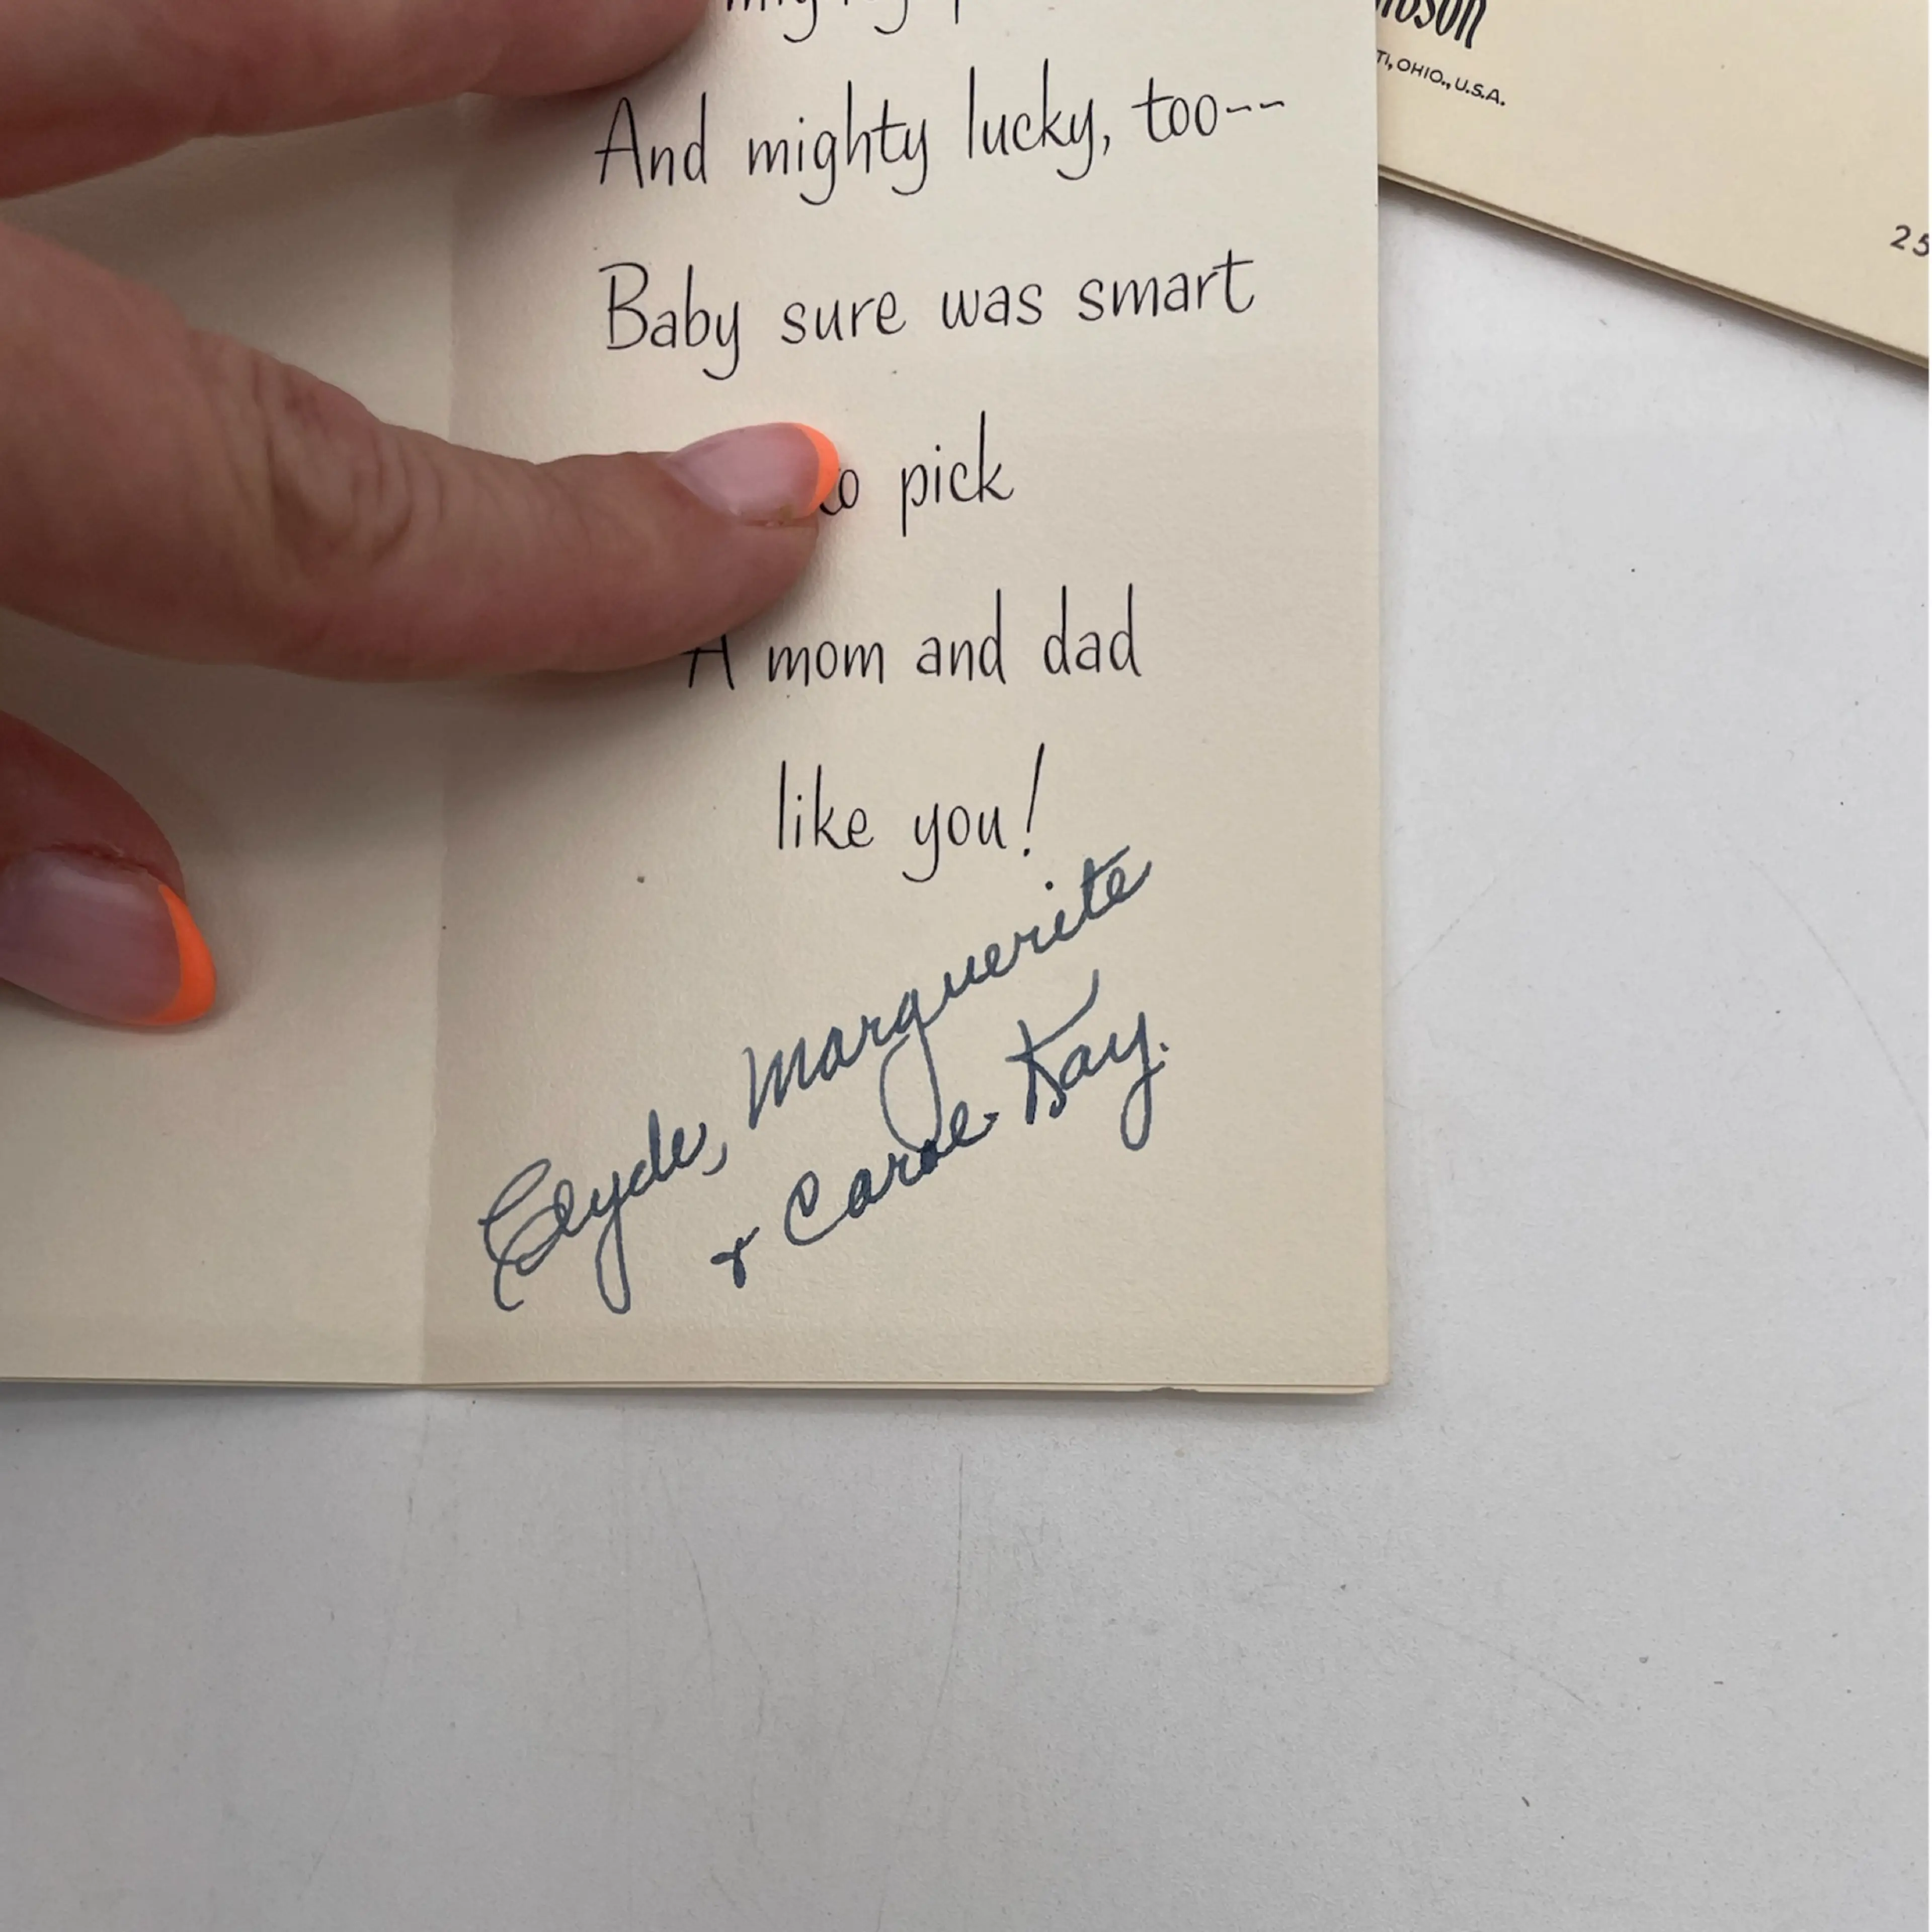 And mighty lucky, too--
Baby sure was smart
to pick
A mom and dad
like you!
Clyde, Marguerite
& Carole Kay.
OHIO., U.S.A.
25